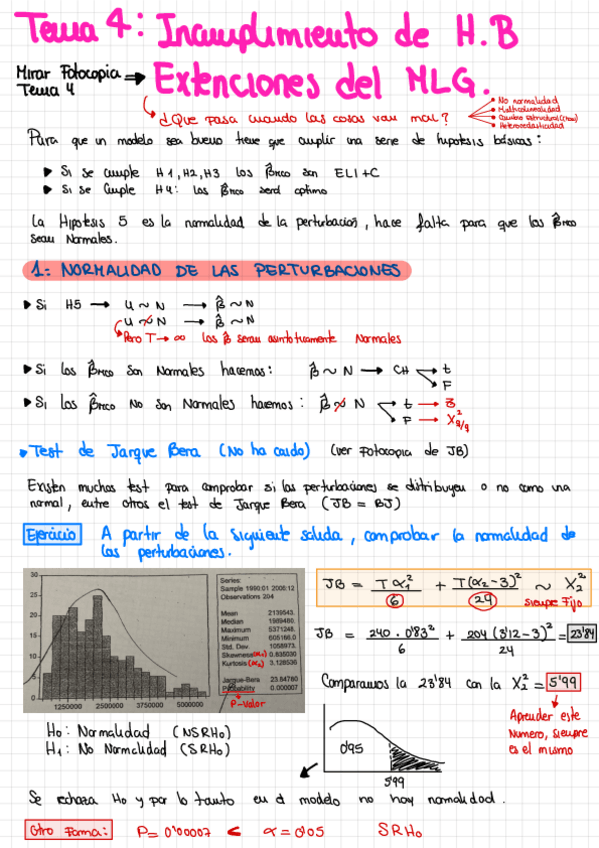 Tema 4: Incumplimiento de H.B
Mirar Fotocopia Tema 4 ⇒ Extenciones del MLG.
¿Que pasa cuando las cosas van mal?
No normalidad
Multicolinealidad
Cambio estructural (Chow)
Heterocedasticidad
Para que un modelo sea bueno tiene que cumplir una serie de hipotesis básicas:
▸ Si se cumple H1, H2, H3 los β̂mco son ELI+C
▸ Si se cumple H4: los β̂mco será optimo
La Hipotesis 5 es la normalidad de la perturbación, hace falta para que los β̂mco
sean Normales.
1: NORMALIDAD DE LAS PERTURBACIONES
▸ Si H5 → u ~ N → β̂ ~ N
u ≁ N → β̂ ~ N
Pero T → ∞ los β̂ serán asintoticamente Normales
▸ Si los β̂mco son Normales hacemos: β̂ ~ N → CH → t
F
▸ Si los β̂mco No son Normales haremos: β̂ ≁ N → t → z
F → X²q/q
Test de Jarque Bera (No ha caido) (ver Fotocopia de JB)
Existen muchos test para comprobar si las perturbaciones se distribuyen o no como una
normal, entre otros el test de Jarque Bera (JB = BJ)
Ejercicio A partir de la siguiente salida, comprobar la normalidad de
las perturbaciones.
30
25
20
15
10
5
0
1250000 2500000 3750000 5000000
Series:
Sample 1990:01 2006:12
Observations 204
Mean 2139543.
Median 1989480.
Maximum 5371248.
Minimum 605166.0
Std. Dev. 1058973.
Skewness (α₁) 0.835030
Kurtosis (α₂) 3.128536
Jarque-Bera 23.84760
Probability 0.000007
P-valor
JB = Tα₁²/6 + T(α₂-3)²/24 ~ X²₂
siempre Fijo
JB = 240 · 0'83²/6 + 204 (3'12-3)²/24 = 23'84
Comparamos la 23'84 con la X²₂ = 5'99
Aprender este
Numero, siempre
es el mismo
H₀: Normalidad (NSRH₀)
H₁: No Normalidad (SRH₀)
0'95
5'99
Se rechaza H₀ y por lo tanto en el modelo no hay normalidad.
Otra Forma: P = 0'00007 < α = 0'05 SRH₀